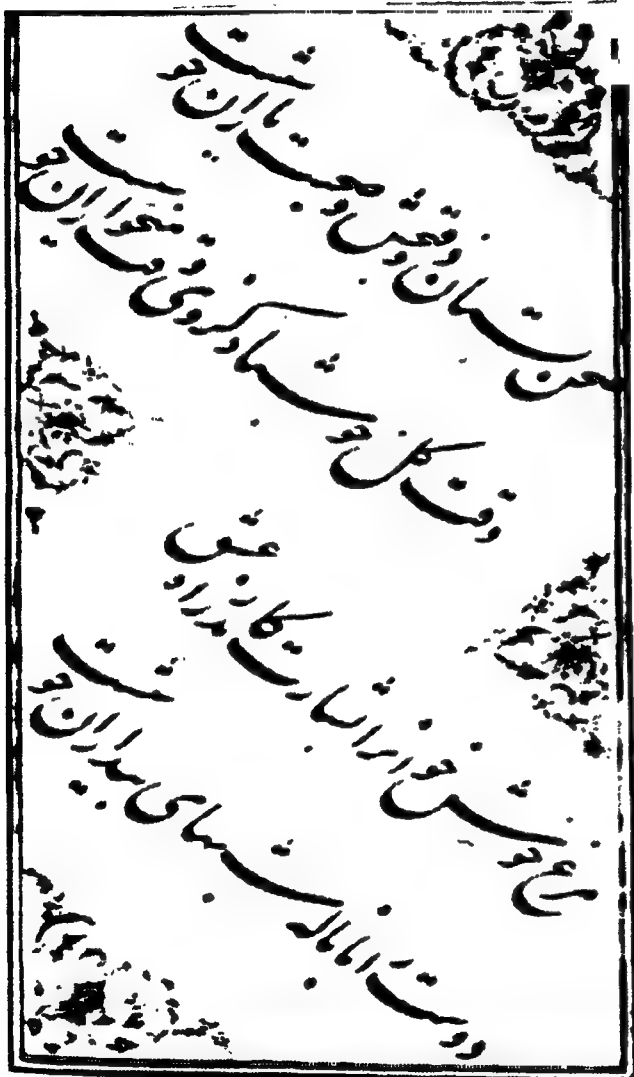 صحن بستان ذوق بخش و صحبت یاران خوشست
وقت گل خوش باد کز وی وقت میخواران خوشست
مرغ خوشخوانرا بشارت کاندر راه عشق
دوست را با ناله شبهای بیداران خوشست